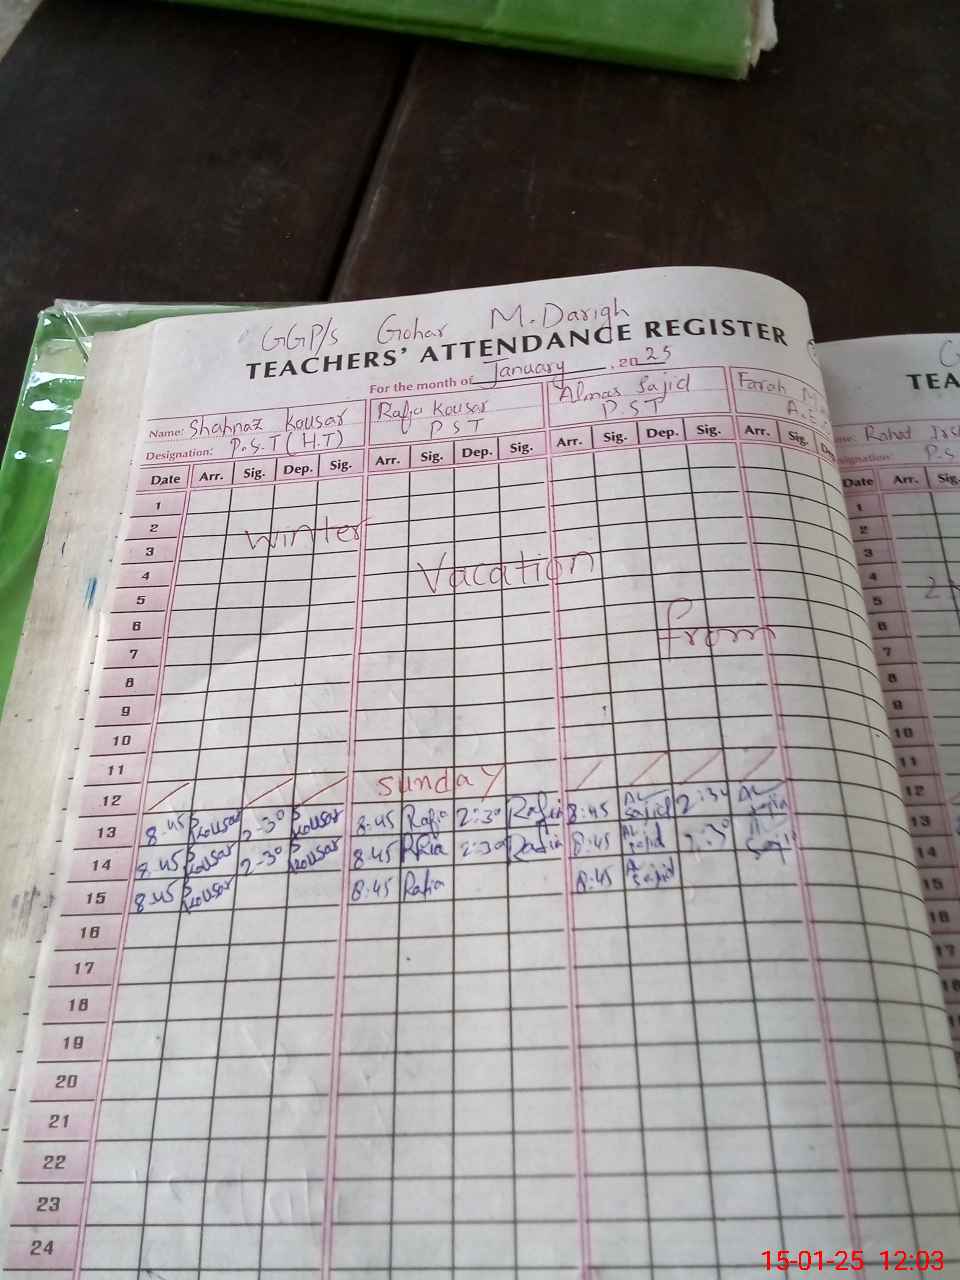 GGP/s Gohar M.Darigh
TEACHERS' ATTENDANCE REGISTER
For the month of January, 2025
Name: Shahnaz Kousar Rafia Kousar Almas Sajid Farah M
Designation: P.S.T (H.T) PST PST
Date Arr. Sig. Dep. Sig. Arr. Sig. Dep. Sig. Arr. Sig. Dep. Sig. Arr. Sig.
1
2
3 Winter
4 Vacation
5
6
7 from
8
9
10
11
12 Sunday
13 8:45 Kousar 2:30 Kousar 8:45 Rafia 2:30 Rafia 8:45 Sajid 2:30 Sajid
14 8:45 Kousar 2:30 Kousar 8:45 Rafia 2:30 Rafia 8:45 Sajid 2:30 Sajid
15 8:45 Kousar 8:45 Rafia 8:45 Sajid
16
17
18
19
20
21
22
23
24
TEA
Rahat
P.S
Date Arr. Sig.
1
2
3
4
5
6
7
8
9
10
11
12
13
14
15
16
17
15-01-25 12:03